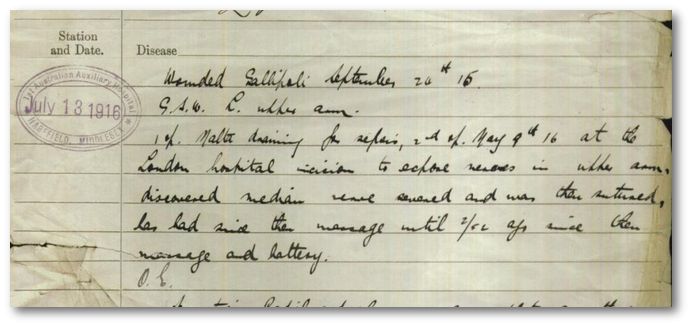 Station
and Date.
Disease
Wounded Gallipoli September 20th 15.
G.S.W. L. upper arm.
1 op. Malta draining for sepsis, 2nd op. May 9th 16 at the
London hospital incision to expose nerves in upper arm,
discovered median nerve severed and was then sutured,
has had since then massage until since then
massage and battery.
O.E.
1st Australian Auxiliary Hospital
July 13 1916
HAREFIELD, MIDDLESEX